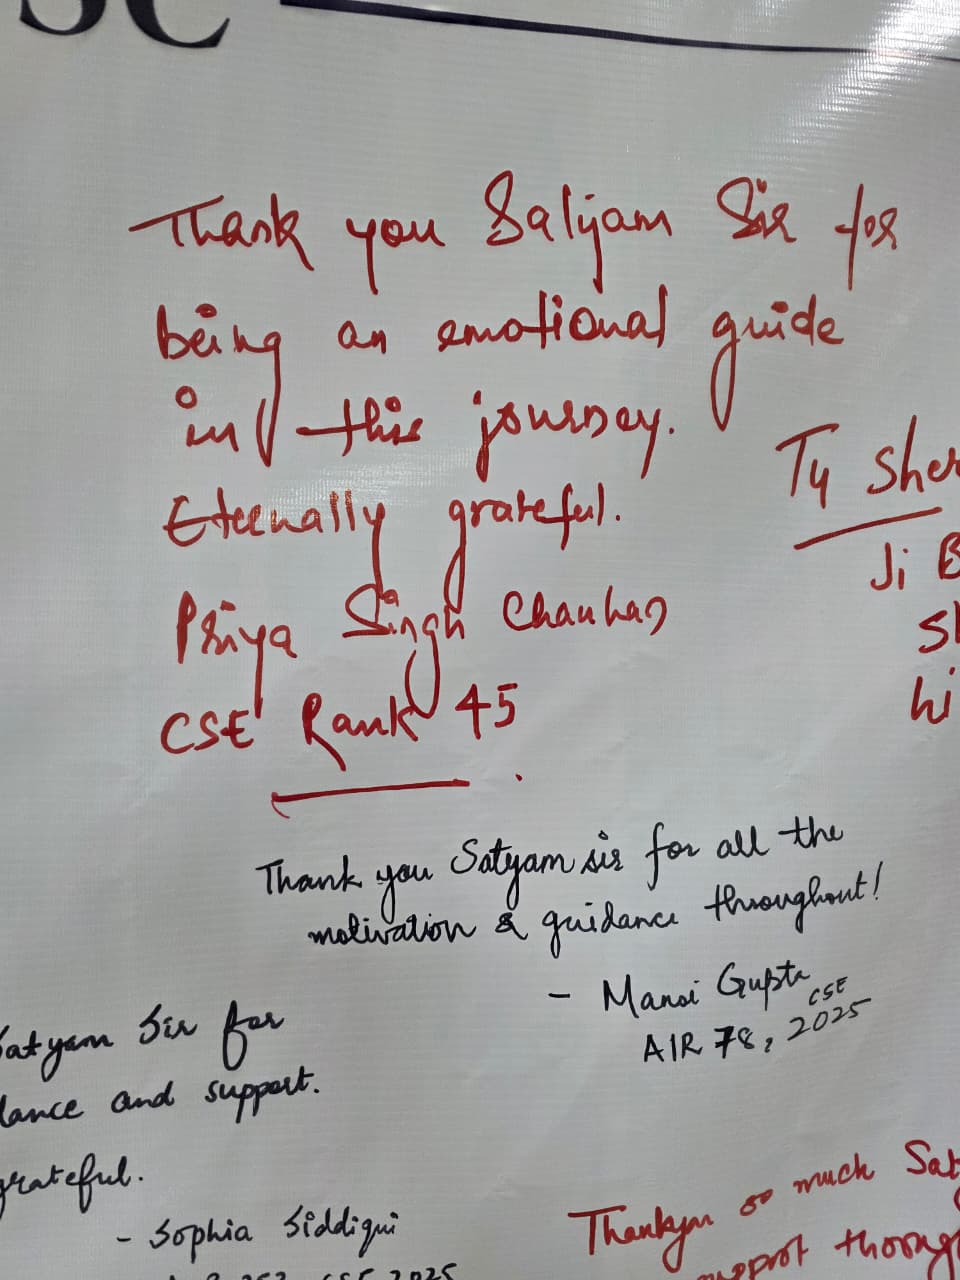 SC
Thank you Satyam Sir for
being an emotional guide
in this journey.
Eternally grateful.
Priya Singh Chauhan
CSE Rank 45
Ty Sher
Ji B
hi
Thank you Satyam sir for all the
motivation & guidance throughout!
- Mansi Gupta
AIR 78, CSE 2025
Satyam Sir for
dance and support.
grateful.
- Sophia Siddiqui
CSE 2025
Thankyou so much Sat
support throug